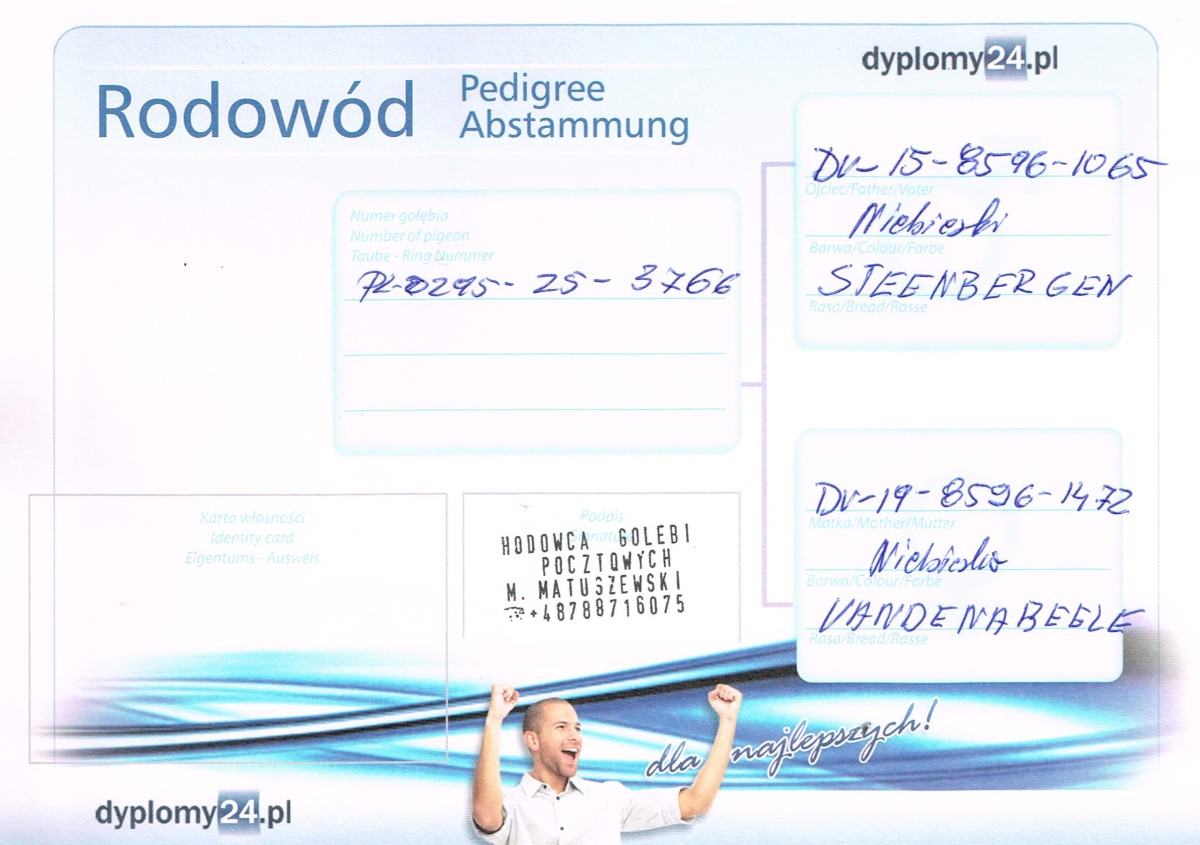 dyplomy24.pl
Rodowód
Pedigree
Abstammung
Numer gołębia
Number of pigeon
Taube - Ring Nummer
PL-0295-25-3766
DV-15-8596-1065
Ojciec/Father/Vater
Niebieski
Barwa/Colour/Farbe
STEENBERGEN
Rasa/Bread/Rasse
DV-19-8596-1472
Matka/Mother/Mutter
Niebieska
Barwa/Colour/Farbe
VANDENABEELE
Rasa/Bread/Rasse
Karta własności
Identity card
Eigentums - Ausweis
Podpis
Signature
HODOWCA GOLEBI
POCZTOWYCH
M. MATUSZEWSKI
+48788716075
dla najlepszych!
dyplomy24.pl